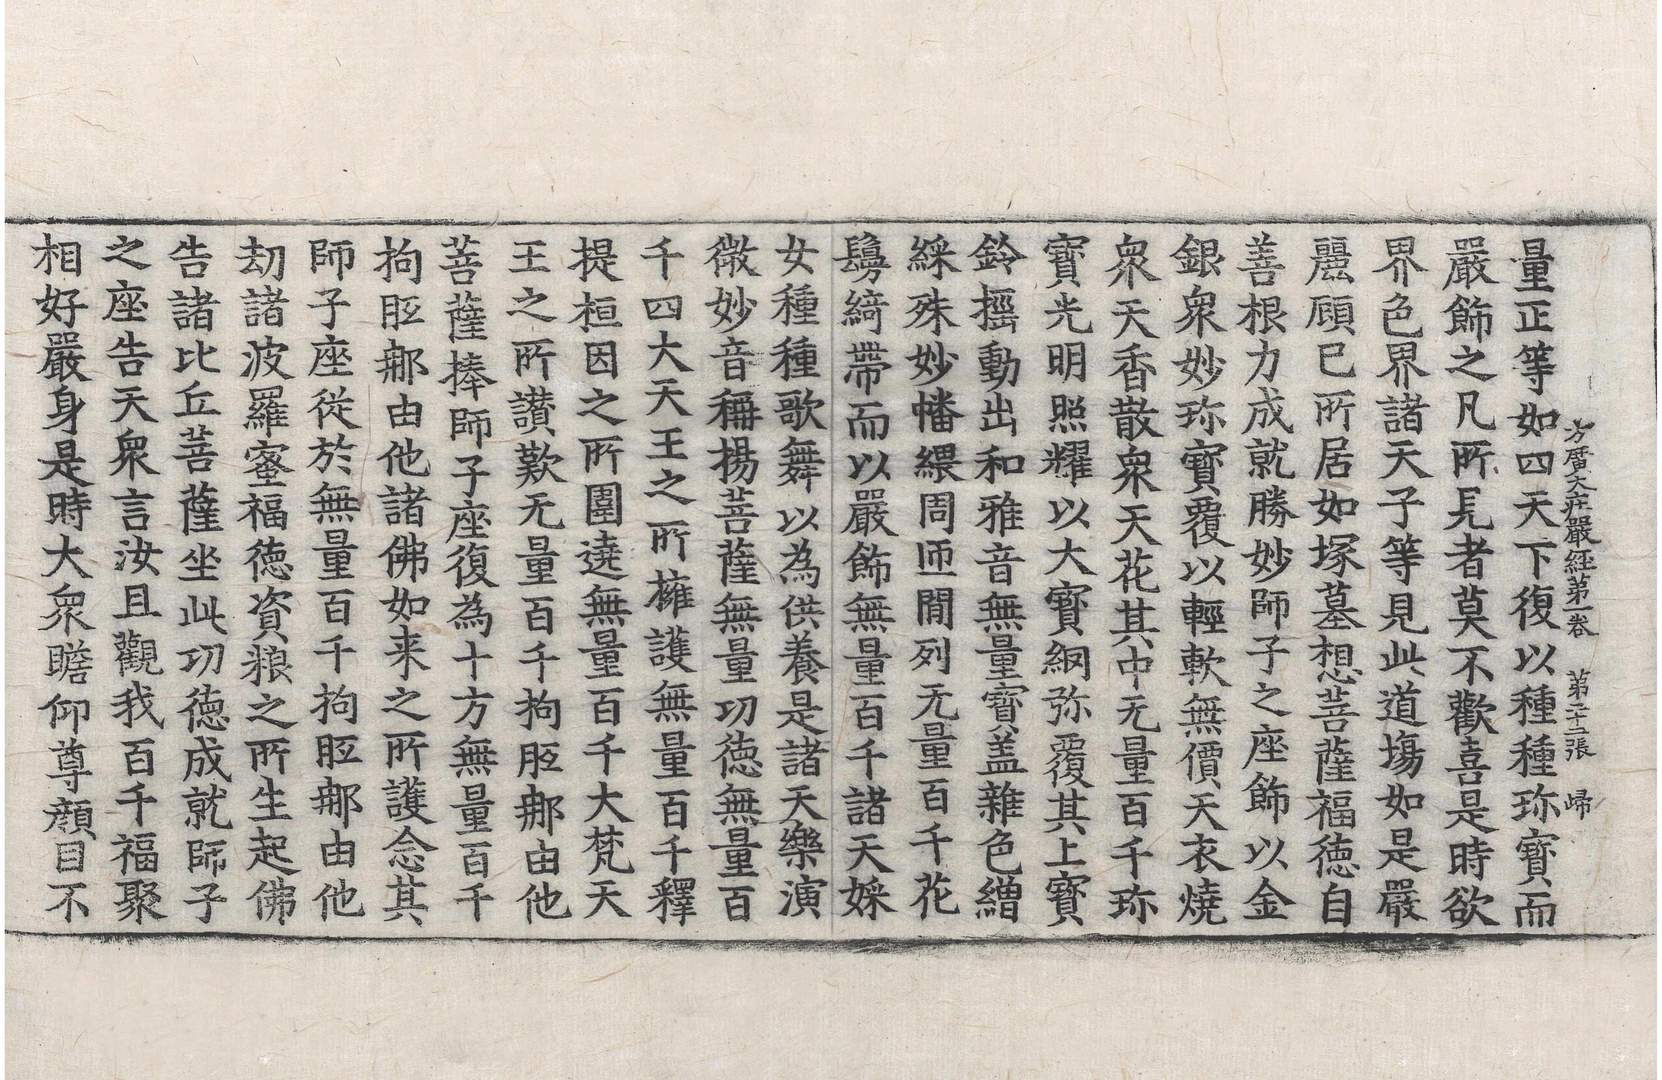 方廣大莊嚴經第一卷 第二十二張 歸
量正等如四天下復以種種珎寶而
嚴飾之凡所見者莫不歡喜是時欲
界色界諸天子等見此道場如是嚴
麗顧已所居如塚墓想菩薩福德自
善根力成就勝妙師子之座飾以金
銀衆妙珎寶覆以輕軟無價天衣燒
衆天香散衆天花其中无量百千珎
寶光明照耀以大寶網弥覆其上寶
鈴搖動出和雅音無量寶盖雜色繒
綵殊妙幡綴周匝間列无量百千花
鬘綺帶而以嚴飾無量百千諸天婇
女種種歌舞以為供養是諸天樂演
微妙音稱揚菩薩無量功德無量百
千四大天王之所擁護無量百千釋
提桓因之所圍遶無量百千大梵天
王之所讃歎无量百千拘胝那由他
菩薩捧師子座復為十方無量百千
拘胝那由他諸佛如来之所護念其
師子座從於無量百千拘胝那由他
劫諸波羅蜜福德資粮之所生起佛
告諸比丘菩薩坐此功德成就師子
之座告天衆言汝且觀我百千福聚
相好嚴身是時大衆瞻仰尊顔目不